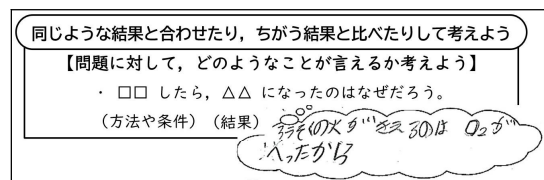 同じような結果と合わせたり，ちがう結果と比べたりして考えよう
【問題に対して，どのようなことが言えるか考えよう】
・ □□ したら，△△ になったのはなぜだろう。
（方法や条件）（結果）
ろうそくの火がきえるのは O₂が
へったから